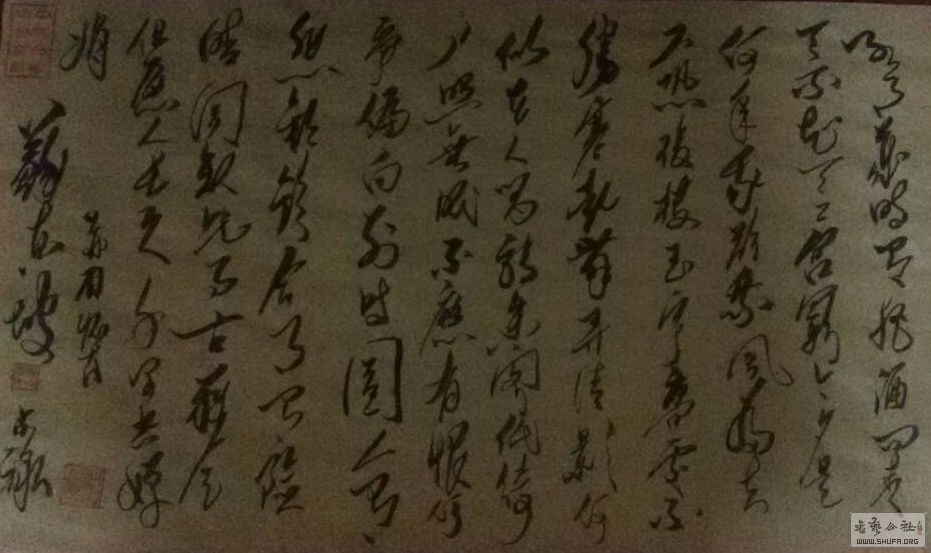 明月幾時有把酒問青
天不知天上宮闕今夕是
何年我欲乘風歸去
又恐瓊樓玉宇高處不
勝寒起舞弄清影何
似在人間轉朱閣低綺
戶照無眠不應有恨何
事偏向別時圓人有
悲歡離合月有陰
晴圓缺此事古難全
但願人長久千里共嬋
娟
蘇東坡
WWW.SHUFA.ORG